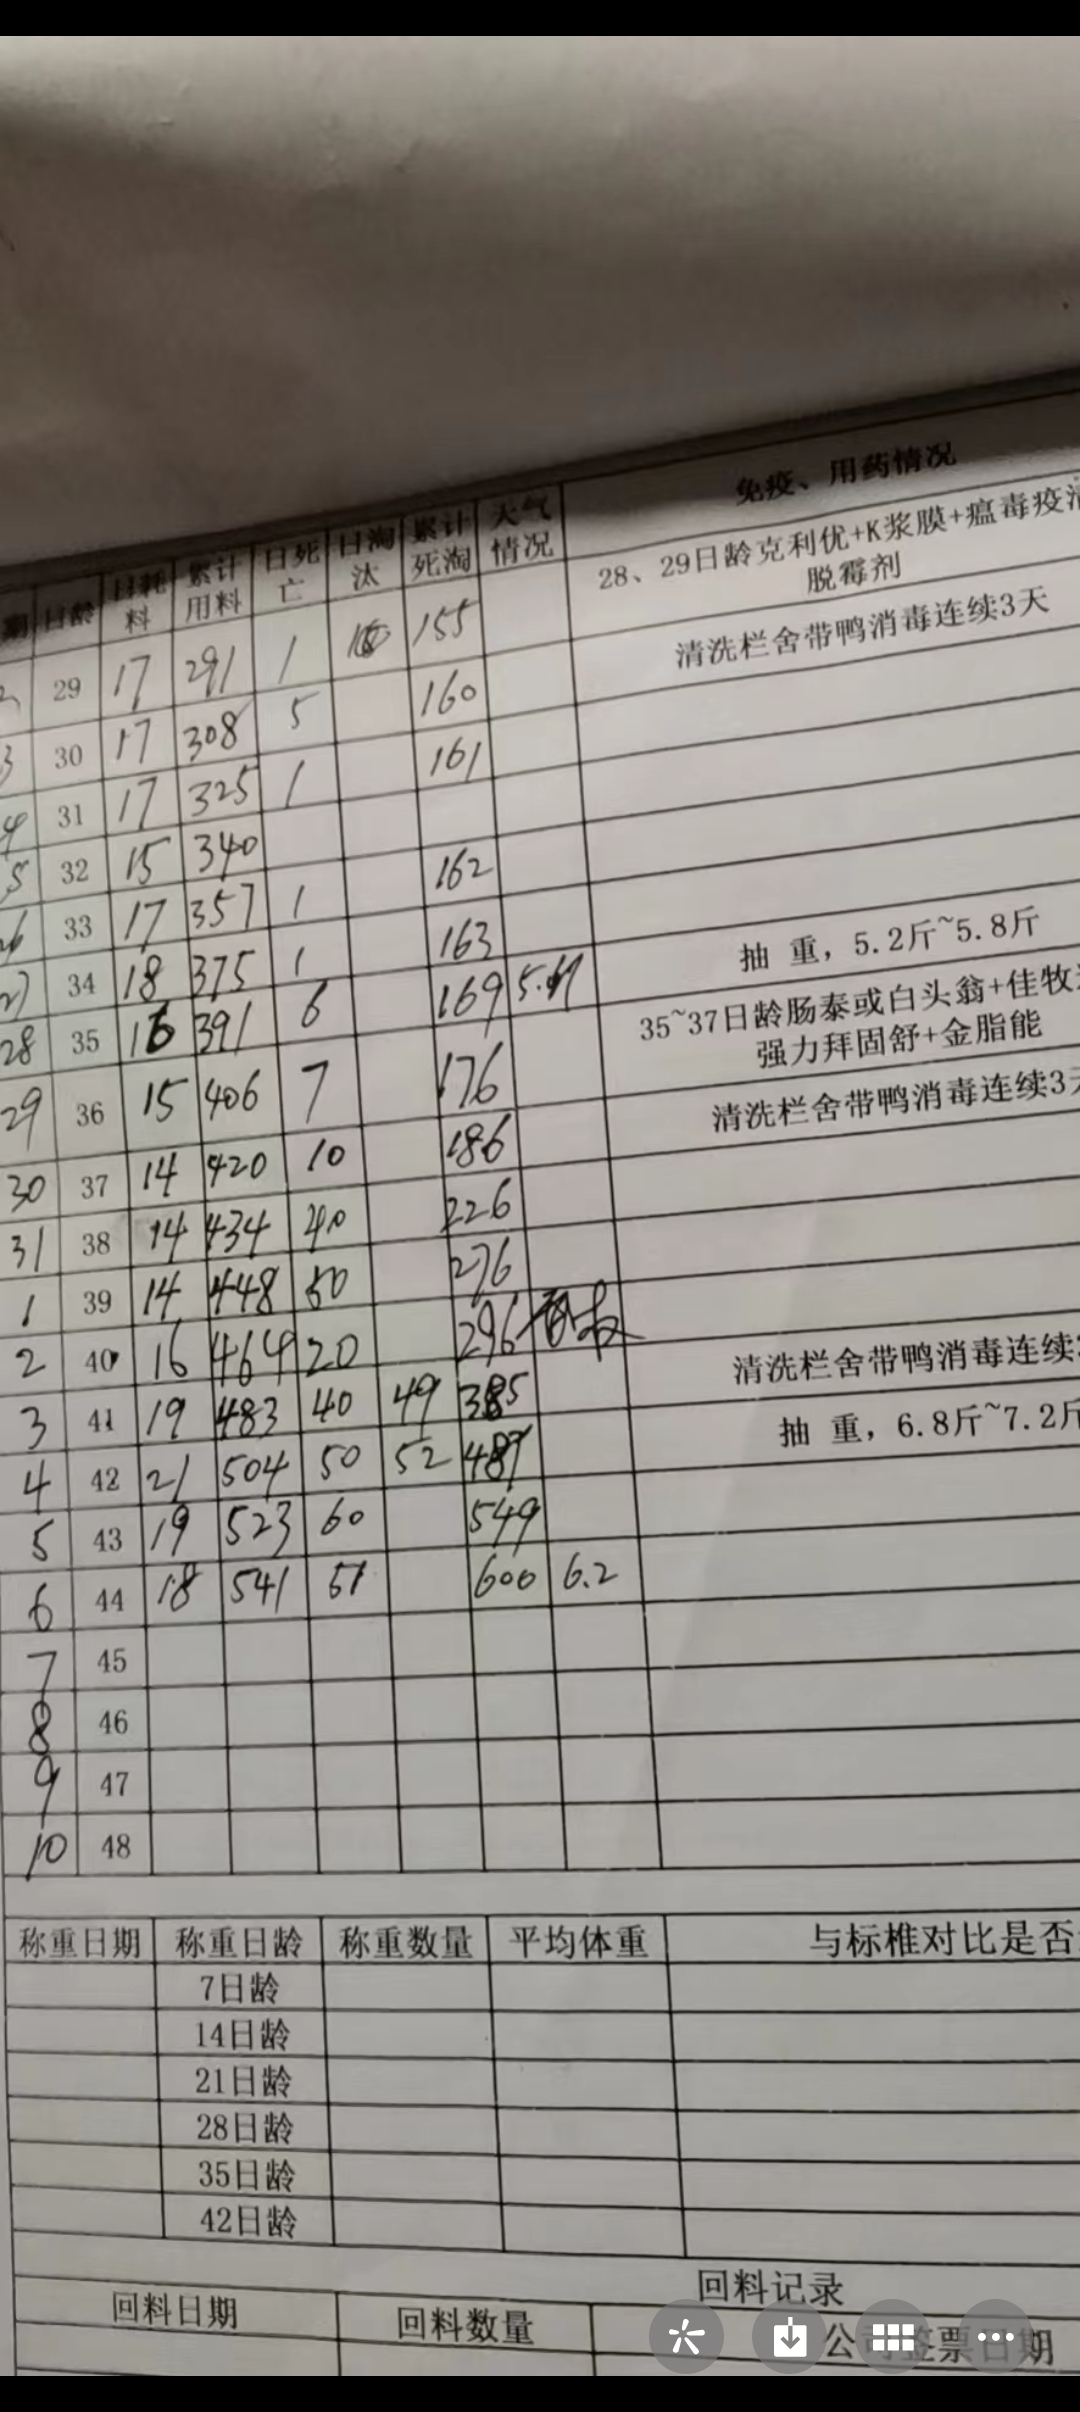 免疫、用药情况
期 日龄 日耗料 累计用料 日死亡 日淘汰 累计死淘 天气情况
28、29日龄克利优+K浆膜+瘟毒疫
脱霉剂
29 17 291 1 155
清洗栏舍带鸭消毒连续3天
3 30 17 308 5 160
4 31 17 325 1 161
5 32 15 340
26 33 17 357 1 162
27 34 18 375 1 163
抽 重，5.2斤~5.8斤
28 35 16 391 6 169
35~37日龄肠泰或白头翁+佳牧
强力拜固舒+金脂能
29 36 15 406 7 176
清洗栏舍带鸭消毒连续3天
30 37 14 420 10 186
31 38 14 434 40 226
1 39 14 448 50 276
2 40 16 464 20 296
3 41 19 483 40 49 385
清洗栏舍带鸭消毒连续
4 42 21 504 50 52 487
抽 重，6.8斤~7.2斤
5 43 19 523 60 549
6 44 18 541 51 600 6.2
7 45
8 46
9 47
10 48
称重日期 称重日龄 称重数量 平均体重 与标椎对比是否
7日龄
14日龄
21日龄
28日龄
35日龄
42日龄
回料记录
回料日期 回料数量 公司签票日期